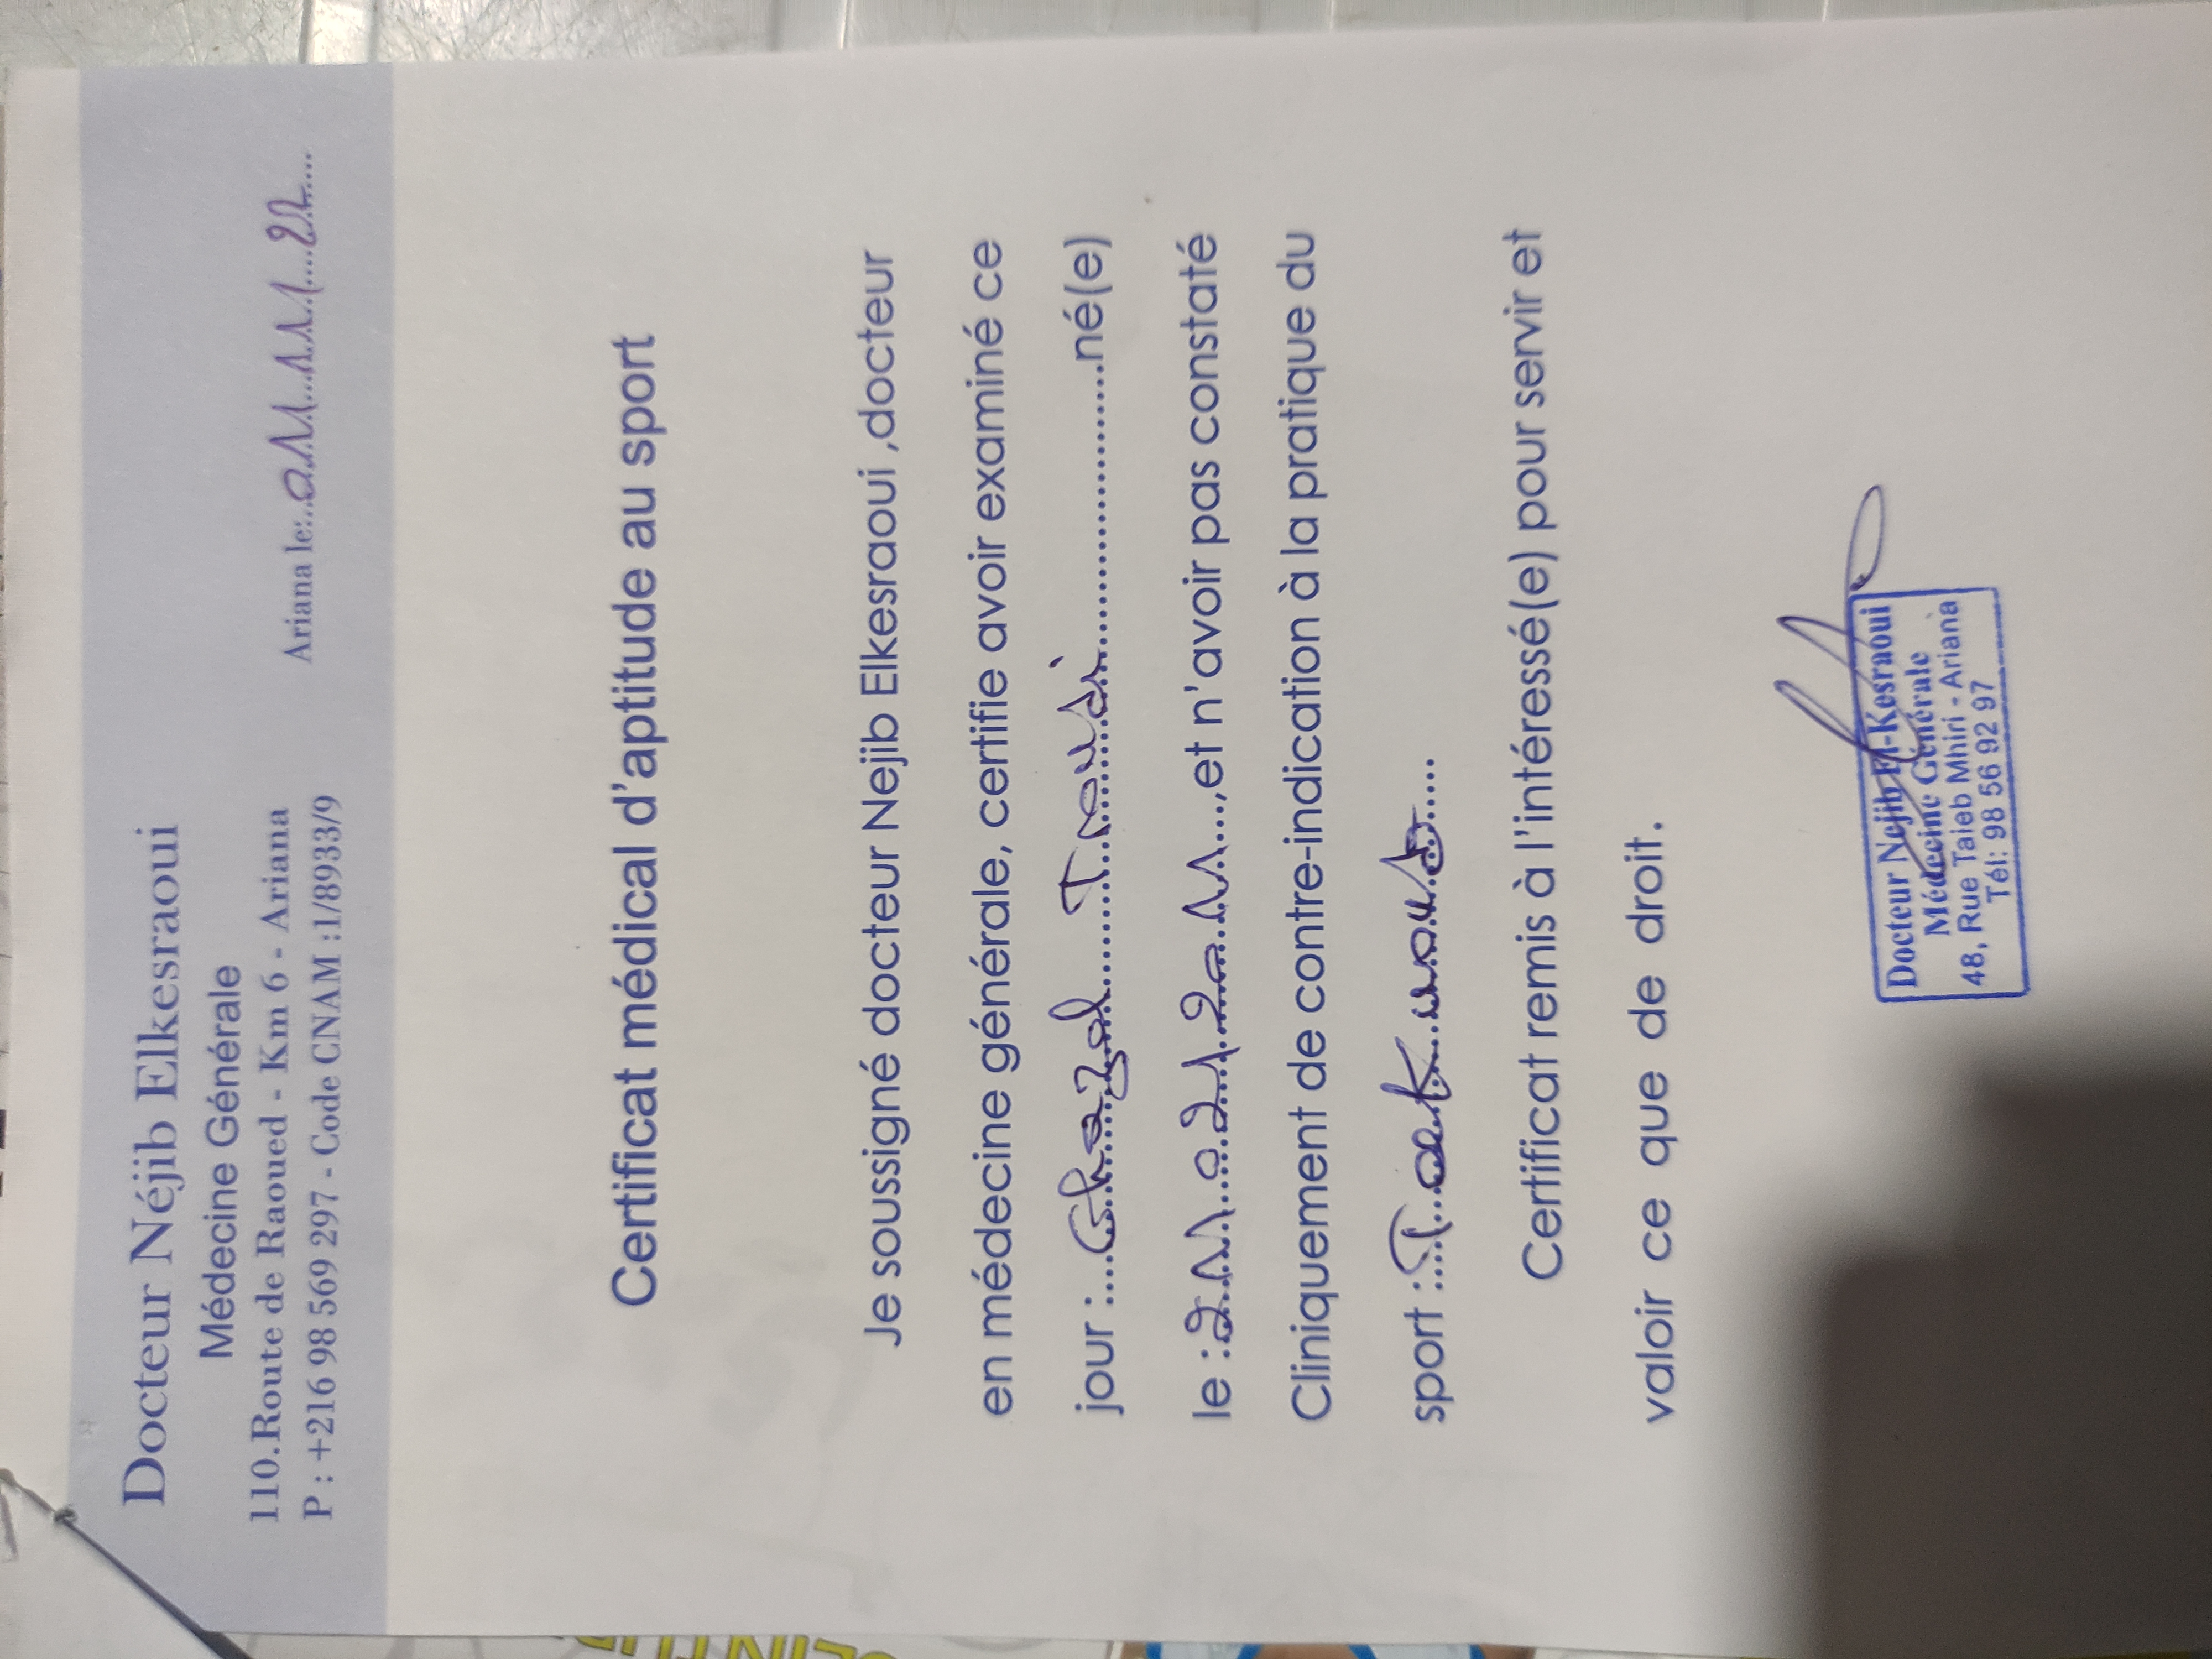 Docteur Néjib Elkesraoui
Médecine Générale
110.Route de Raoued - Km 6 - Ariana
P : +216 98 569 297 - Code CNAM :1/8933/9
Ariana le:..01/11/22...
Certificat médical d'aptitude au sport
Je soussigné docteur Nejib Elkesraoui ,docteur
en médecine générale, certifie avoir examiné ce
jour :....Ghazel.......Traudi.....................né(e)
le :21/02/2011....,et n'avoir pas constaté
Cliniquement de contre-indication à la pratique du
sport :..Taekwondo.....
Certificat remis à l'intéressé(e) pour servir et
valoir ce que de droit.
Docteur Nejib El-Kesraoui
Médecine Générale
48, Rue Taieb Mhiri - Ariana
Tél: 98 56 92 97